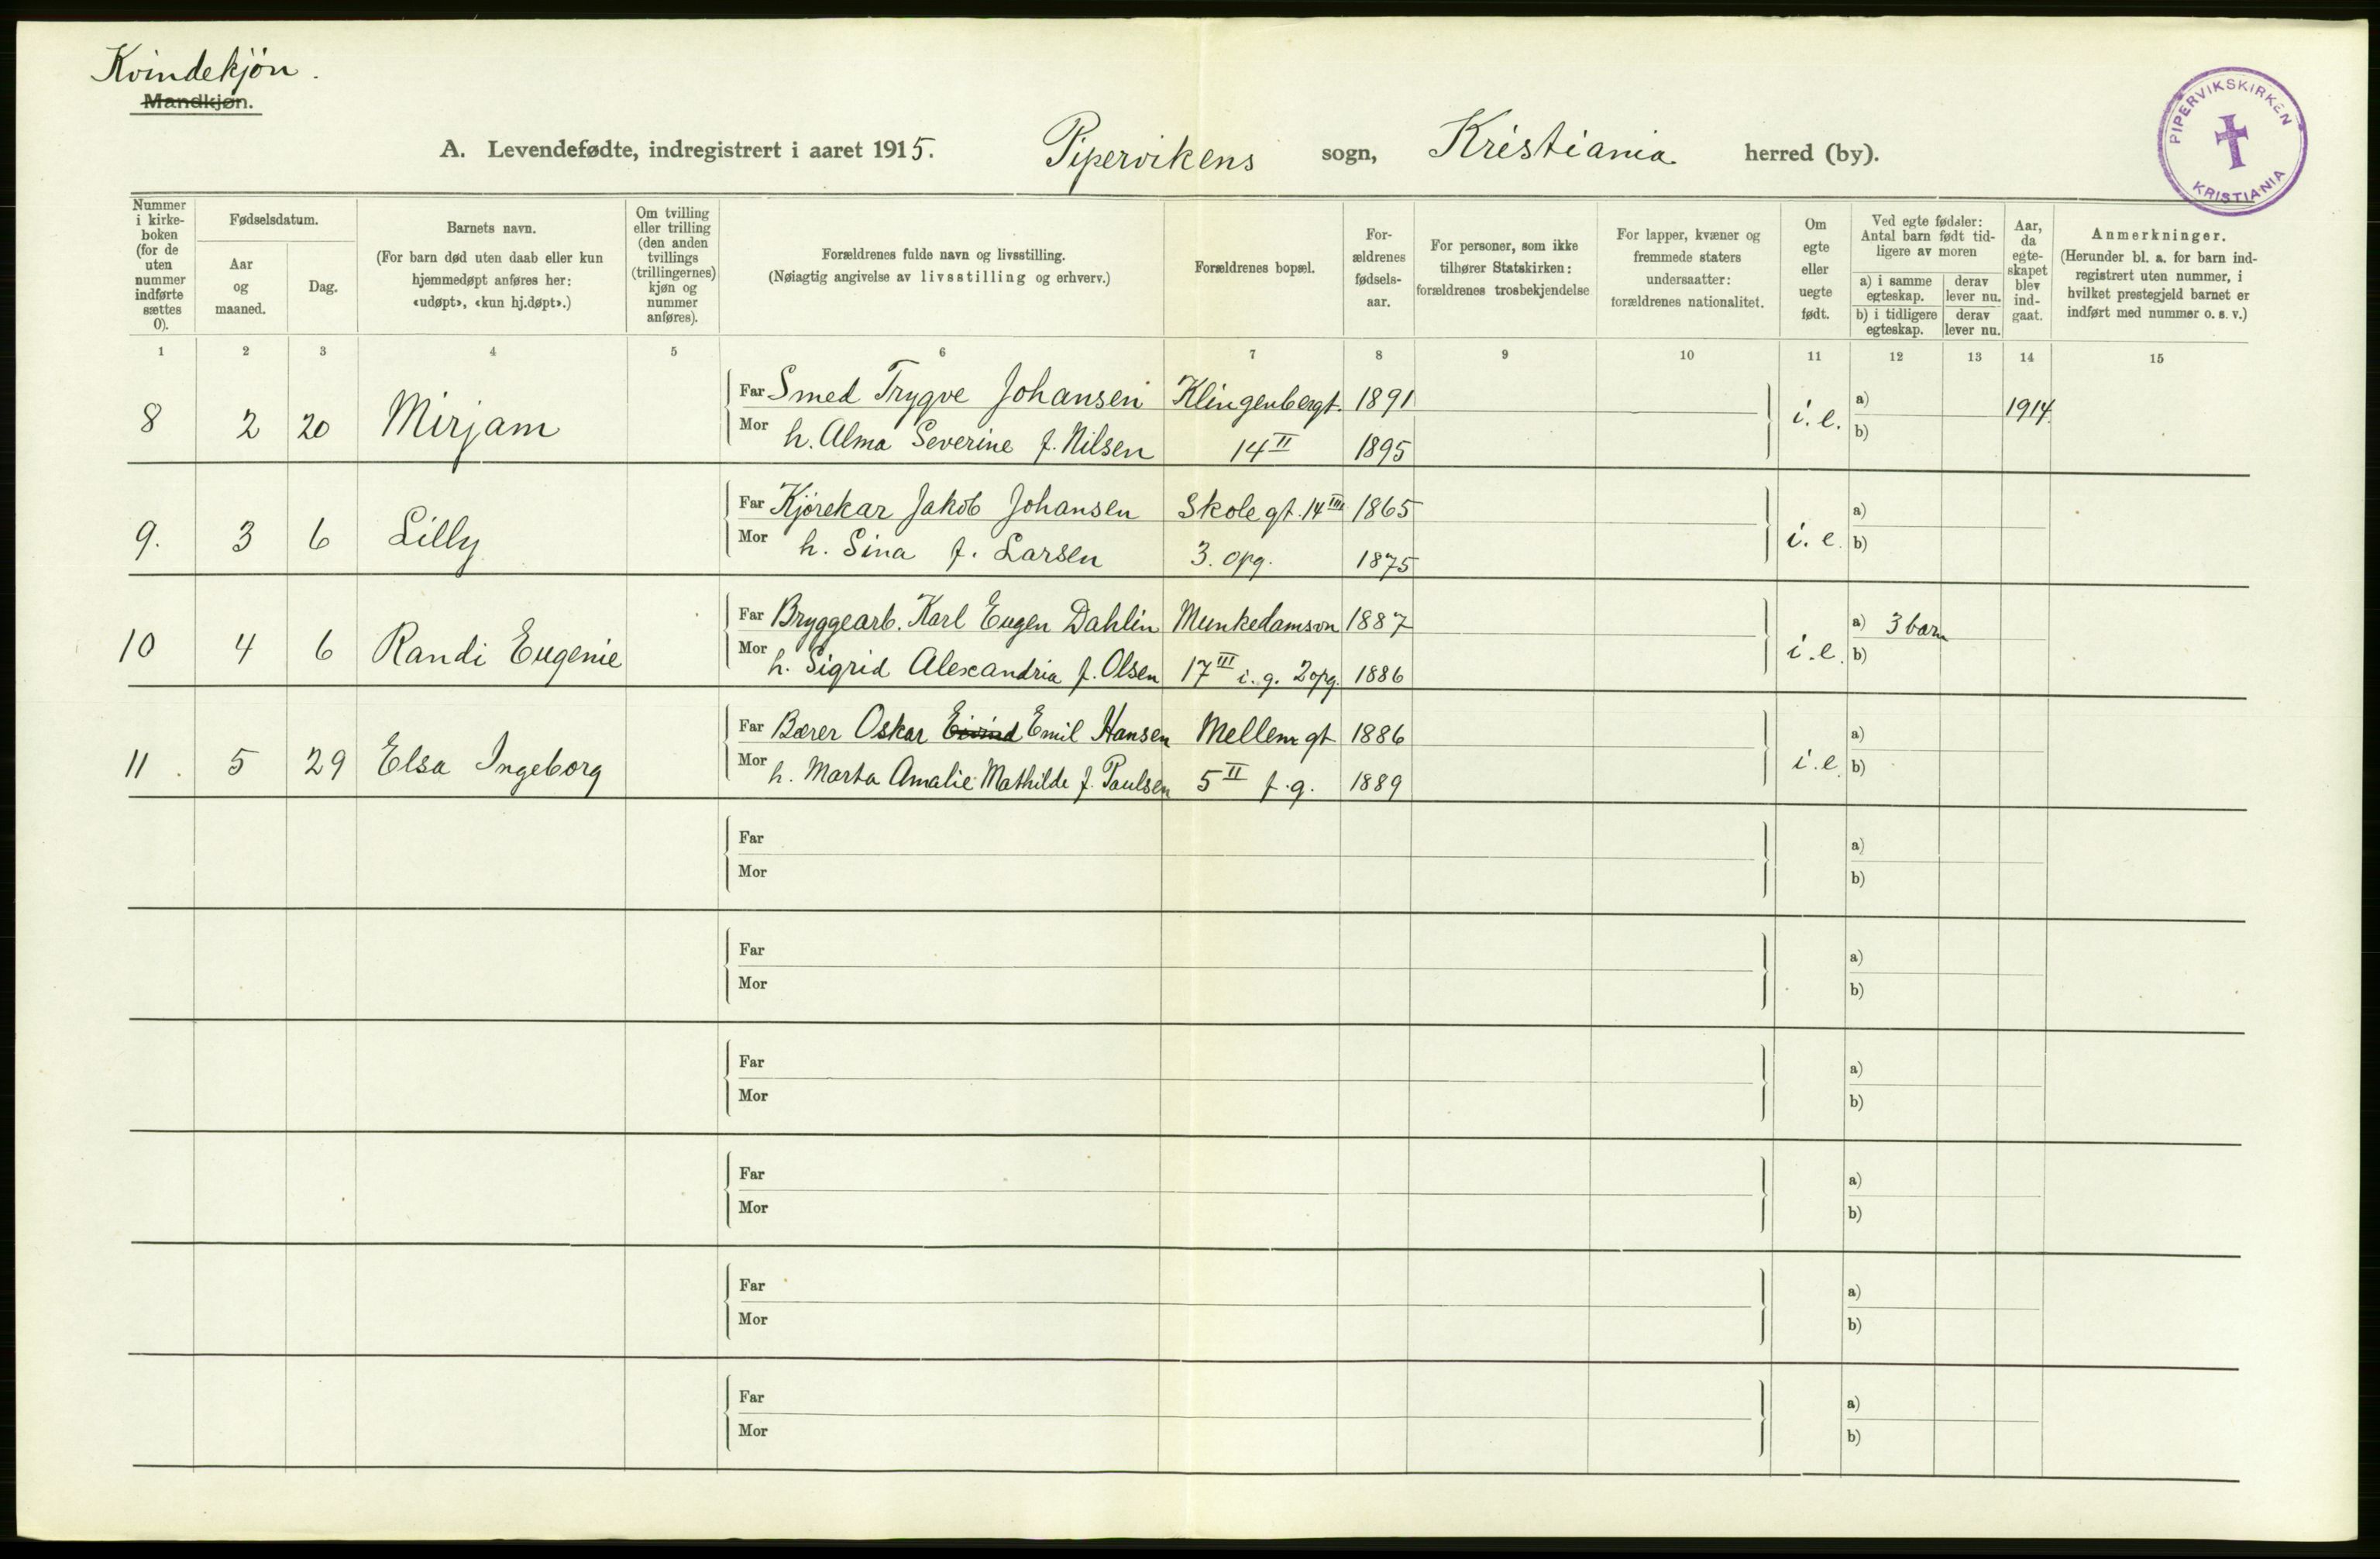 Kvindekjön.
Mandkjøn.
A. Levendefødte, indregistrert i aaret 1915. Pipervikens sogn, Kristiania herred (by).
PIPERVIKSKIRKEN
KRISTIANIA
Nummer
i kirke-
boken
(for de
uten
nummer
indførte
sættes
0).
Fødselsdatum.
Aar
og
maaned.
Dag.
Barnets navn.
(For barn død uten daab eller kun
hjemmedøpt anføres her:
«udøpt», «kun hj.døpt».)
Om tvilling
eller trilling
(den anden
tvillings
(trillingernes)
kjøn og
nummer
anføres).
Forældrenes fulde navn og livsstilling.
(Nøiagtig angivelse av livsstilling og erhverv.)
Forældrenes bopæl.
For-
ældrenes
fødsels-
aar.
For personer, som ikke
tilhører Statskirken:
forældrenes trosbekjendelse
For lapper, kvæner og
fremmede staters
undersaatter:
forældrenes nationalitet.
Om
egte
eller
uegte
født.
Ved egte fødsler:
Antal barn født tid-
ligere av moren
a) i samme
egteskap.
derav
lever nu.
b) i tidligere
egteskap.
derav
lever nu.
Aar,
da
egte-
skapet
blev
ind-
gaat.
Anmerkninger.
(Herunder bl. a. for barn ind-
registrert uten nummer, i
hvilket prestegjeld barnet er
indført med nummer o. s. v.)
1 2 3 4 5 6 7 8 9 10 11 12 13 14 15
8 2 20 Mirjam
Far Smed Trygve Johansen Klingenbergt. 1891
Mor h. Alma Severine f. Nilsen 14 II 1895
i. e. a) b) 1914.
9. 3 6 Lilly
Far Kjörekar Jakob Johansen Skolegt. 14 III 1865
Mor h. Sina f. Larsen 3. opg. 1875
i. e. a) b)
10 4 6 Randi Eugenie
Far Bryggearb. Karl Eugen Dahlin Munkedamsvn 1887
Mor h. Sigrid Alexandria f. Olsen 17 III i. g. 2 opg. 1886
i. e. a) 3 barn b)
11. 5 29 Elsa Ingeborg
Far Bærer Oskar Eivind Emil Hansen Mellemgt 1886
Mor h. Marta Amalie Mathilde f. Paulsen 5 II f. g. 1889
i. e. a) b)
Far a)
Mor b)
Far a)
Mor b)
Far a)
Mor b)
Far a)
Mor b)
Far a)
Mor b)
Far a)
Mor b)